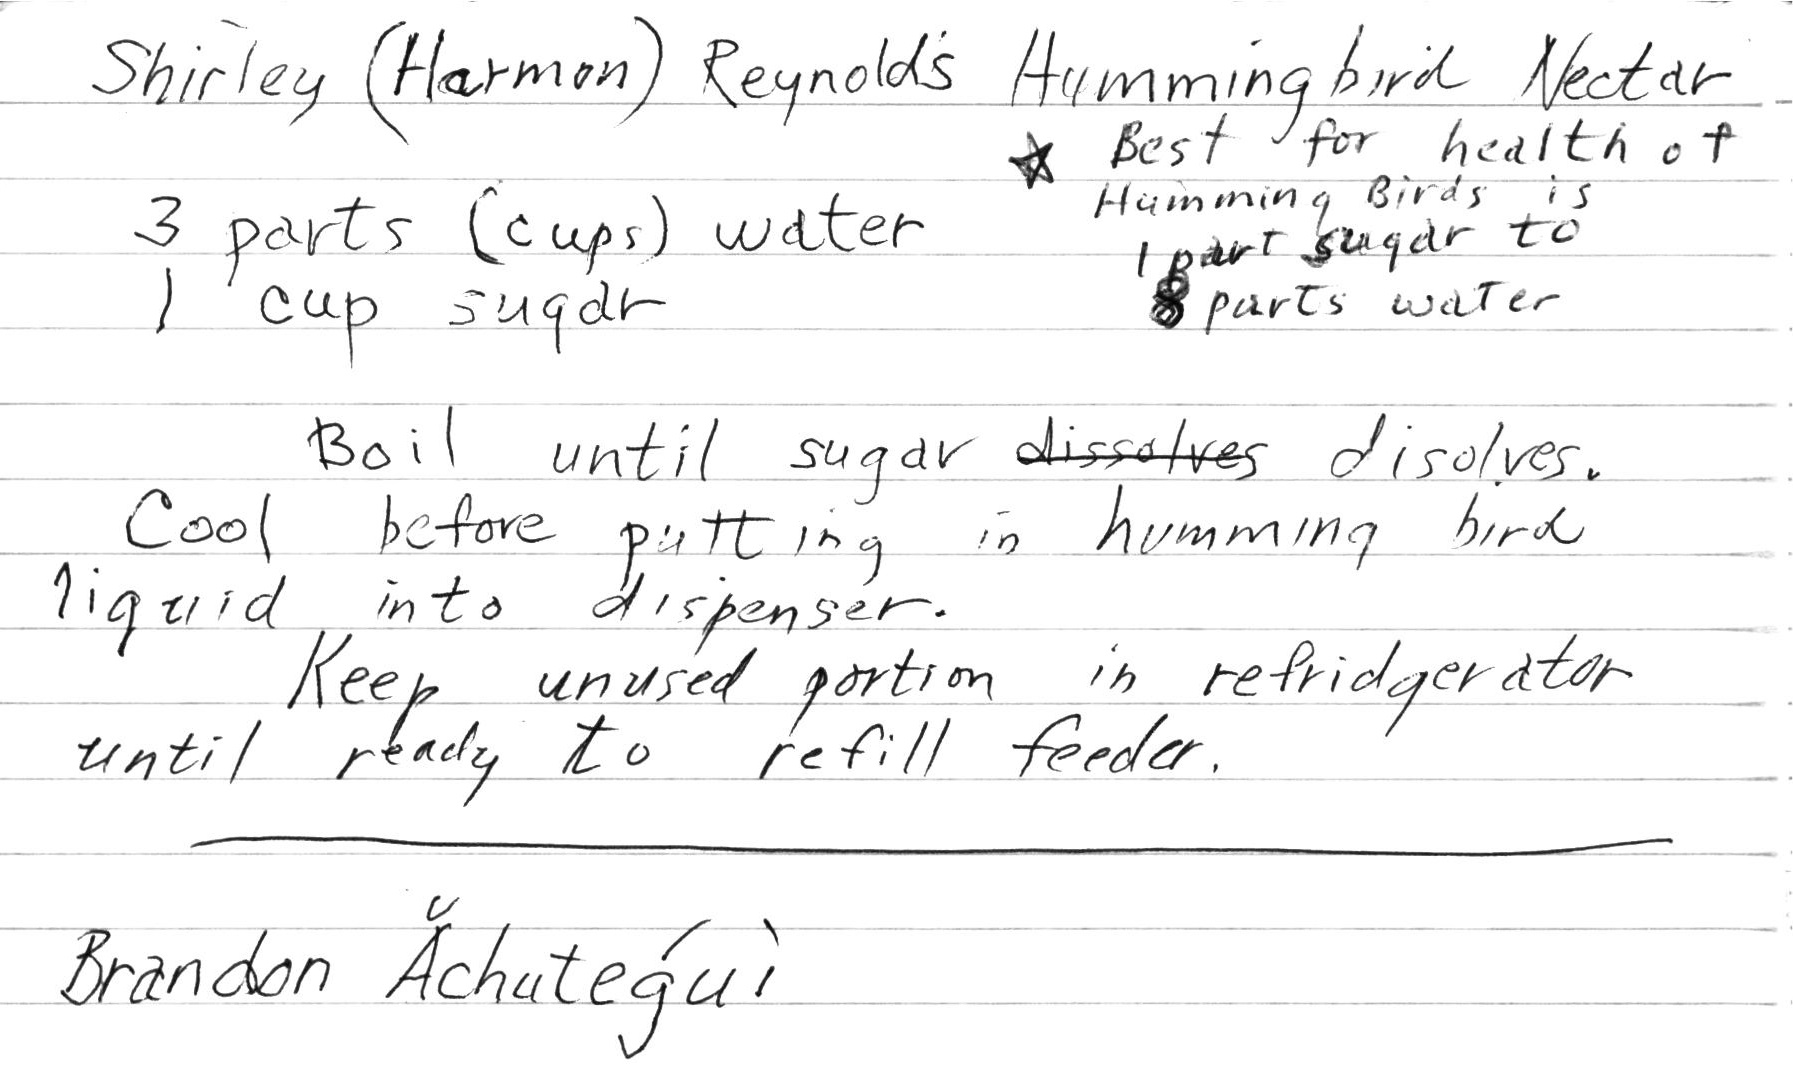 Shirley (Harmon) Reynold's Hummingbird Nectar
☆ Best for health of
Humming Birds is
1 part sugar to
8 parts water
3 parts (cups) water
1 cup sugar
Boil until sugar dissolves disolves.
Cool before putting in humming bird
liquid into dispenser.
Keep unused portion in refridgerator
until ready to refill feeder.
Brandon Ăchuteǵuì